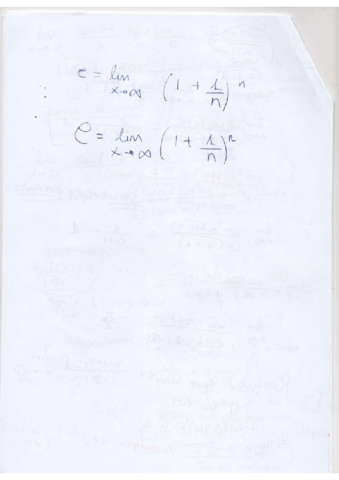 e = lim x→∞ (1 + 1/n)^n
e = lim x→∞ (1 + 1/n)^n